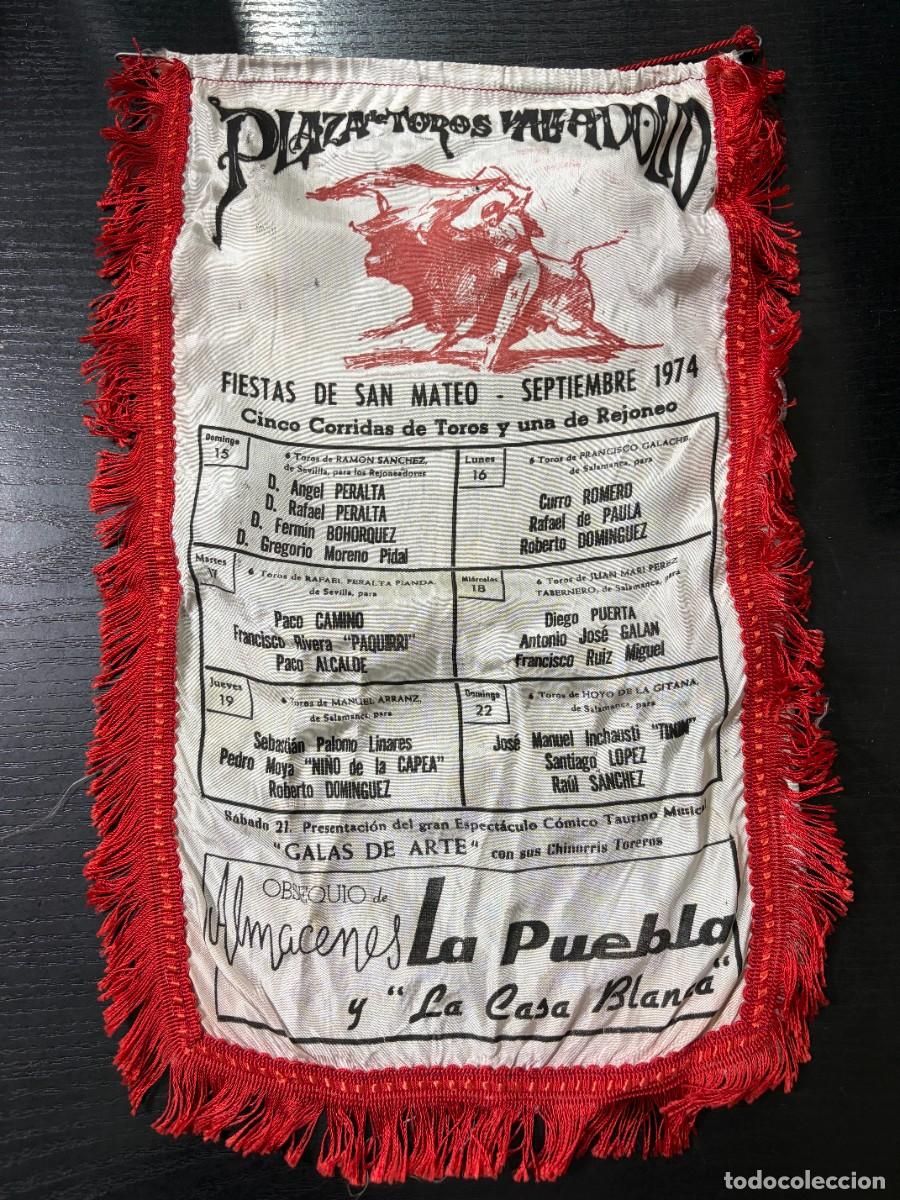 PLAZA DE TOROS VALLADOLID
FIESTAS DE SAN MATEO - SEPTIEMBRE 1974
Cinco Corridas de Toros y una de Rejoneo
Domingo
15
6 Toros de RAMON SANCHEZ,
de Sevilla, para los Rejoneadores
D. Angel PERALTA
D. Rafael PERALTA
D. Fermín BOHORQUEZ
D. Gregorio Moreno Pidal
Lunes
16
6 Toros de FRANCISCO GALACHE,
de Salamanca, para
Curro ROMERO
Rafael de PAULA
Roberto DOMINGUEZ
Martes
17
6 Toros de RAFAEL PERALTA PIANDA,
de Sevilla, para
Paco CAMINO
Francisco Rivera "PAQUIRRI"
Paco ALCALDE
Miércoles
18
6 Toros de JUAN MARI PEREZ
TABERNERO, de Salamanca, para
Diego PUERTA
Antonio José GALAN
Francisco Ruiz Miguel
Jueves
19
6 Toros de MANUEL ARRANZ,
de Salamanca, para
Sebastián Palomo Linares
Pedro Moya "NIÑO de la CAPEA"
Roberto DOMINGUEZ
Domingo
22
6 Toros de HOYO DE LA GITANA,
de Salamanca, para
José Manuel Inchausti "TININ"
Santiago LOPEZ
Raúl SANCHEZ
Sábado 21. Presentación del gran Espectáculo Cómico Taurino Musical
"GALAS DE ARTE" con sus Chinorris Toreros
OBSEQUIO de
Almacenes La Puebla
y "La Casa Blanca"
todocoleccion